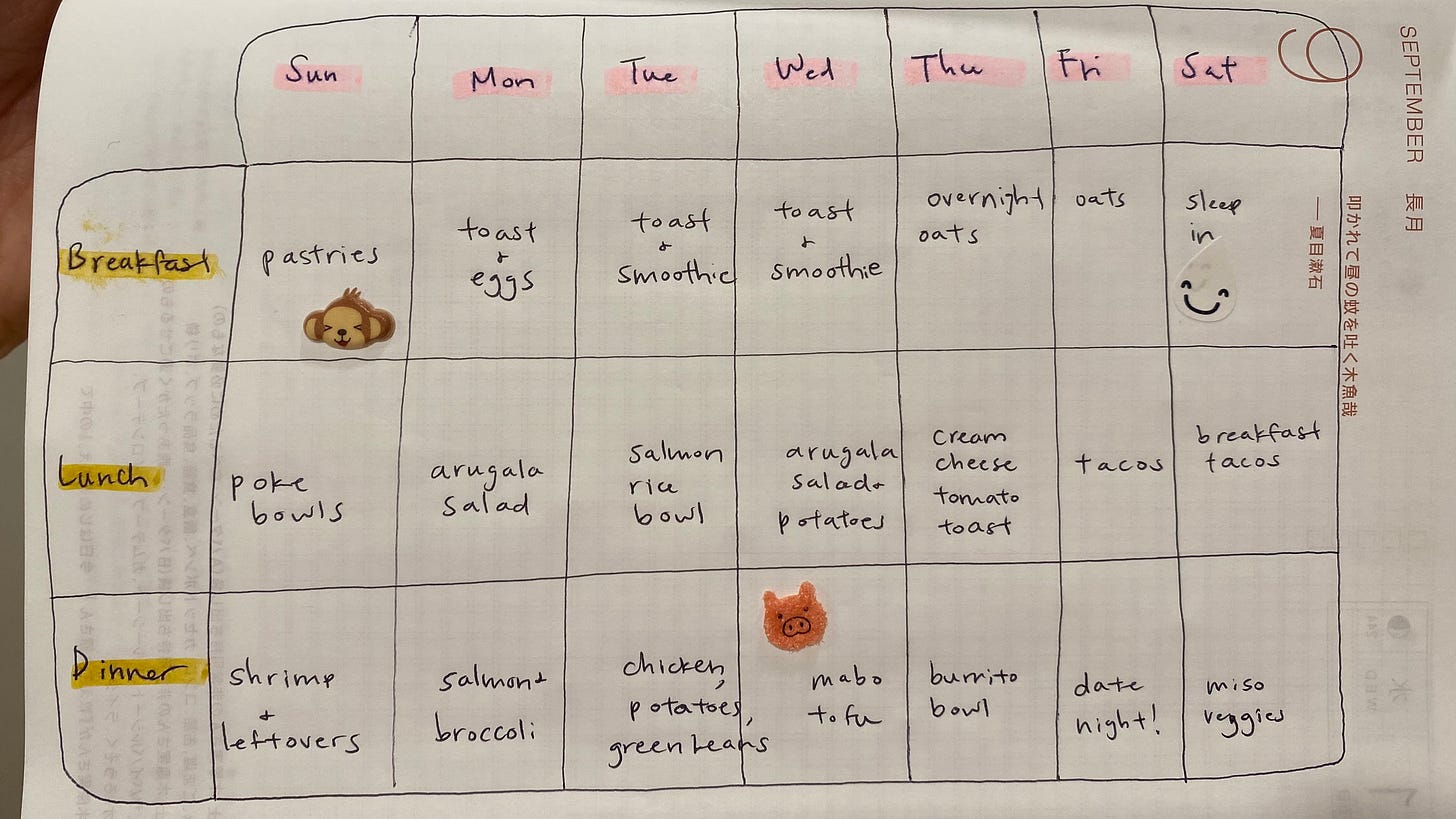 Sun Mon Tue Wed Thu Fri Sat
9
SEPTEMBER 長月
叩かれて昼の蚊を吐く木魚哉
— 夏目漱石
Breakfast
pastries
toast
&
eggs
toast
&
smoothie
toast
&
smoothie
overnight
oats
oats
sleep
in
Lunch
poke
bowls
arugala
salad
salmon
rice
bowl
arugala
salad &
potatoes
cream
cheese
tomato
toast
tacos
breakfast
tacos
Dinner
shrimp
&
leftovers
salmon &
broccoli
chicken,
potatoes,
green beans
mabo
tofu
burrito
bowl
date
night!
miso
veggies